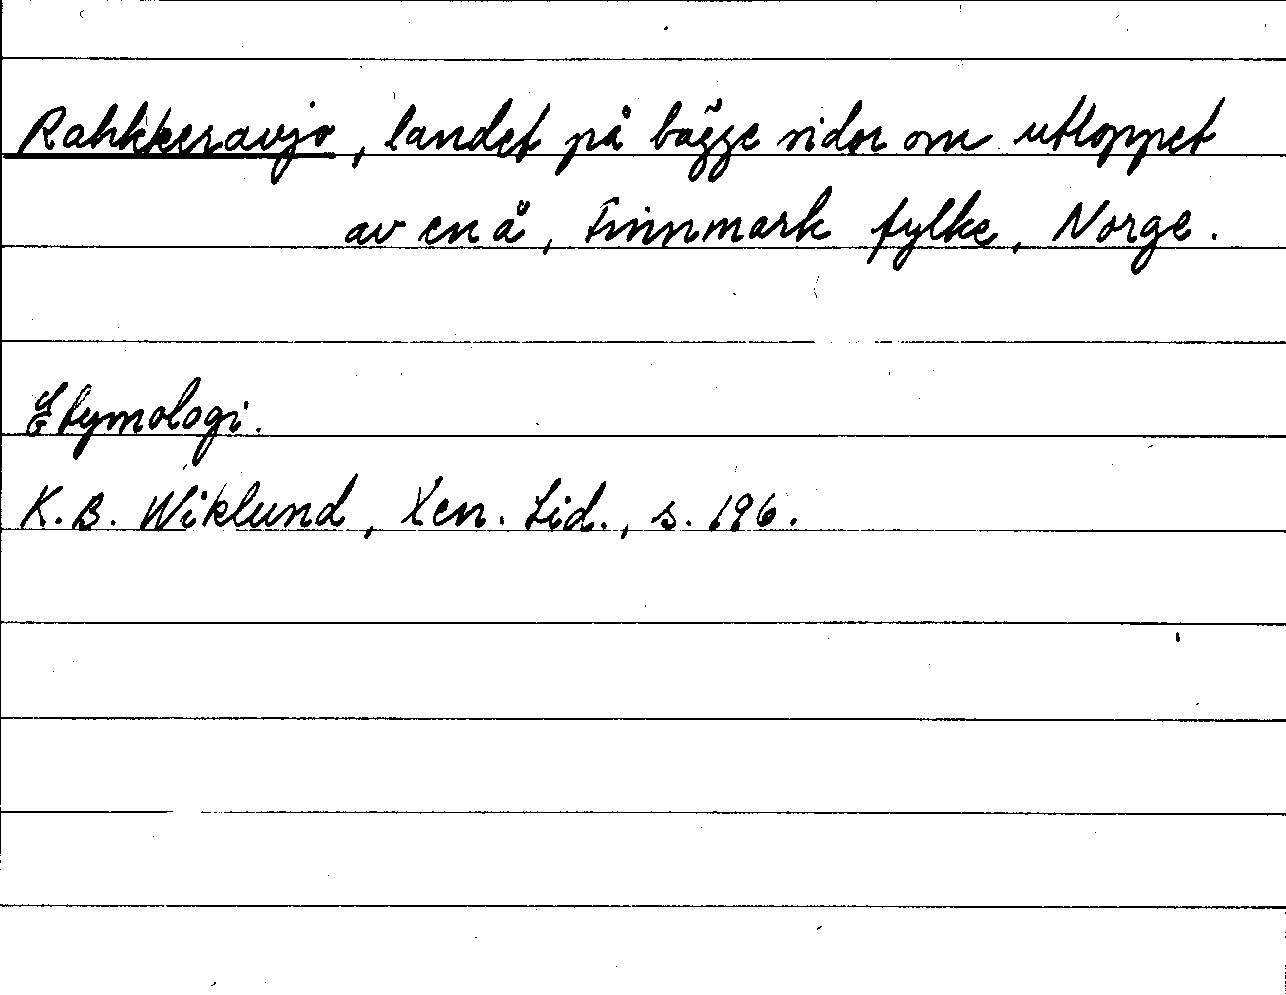 Rahkkeravjo, landet på bägge sidor om utloppet
av en å, Finnmark fylke, Norge.
Etymologi.
K.B. Wiklund, Xen. Lid., s. 196.